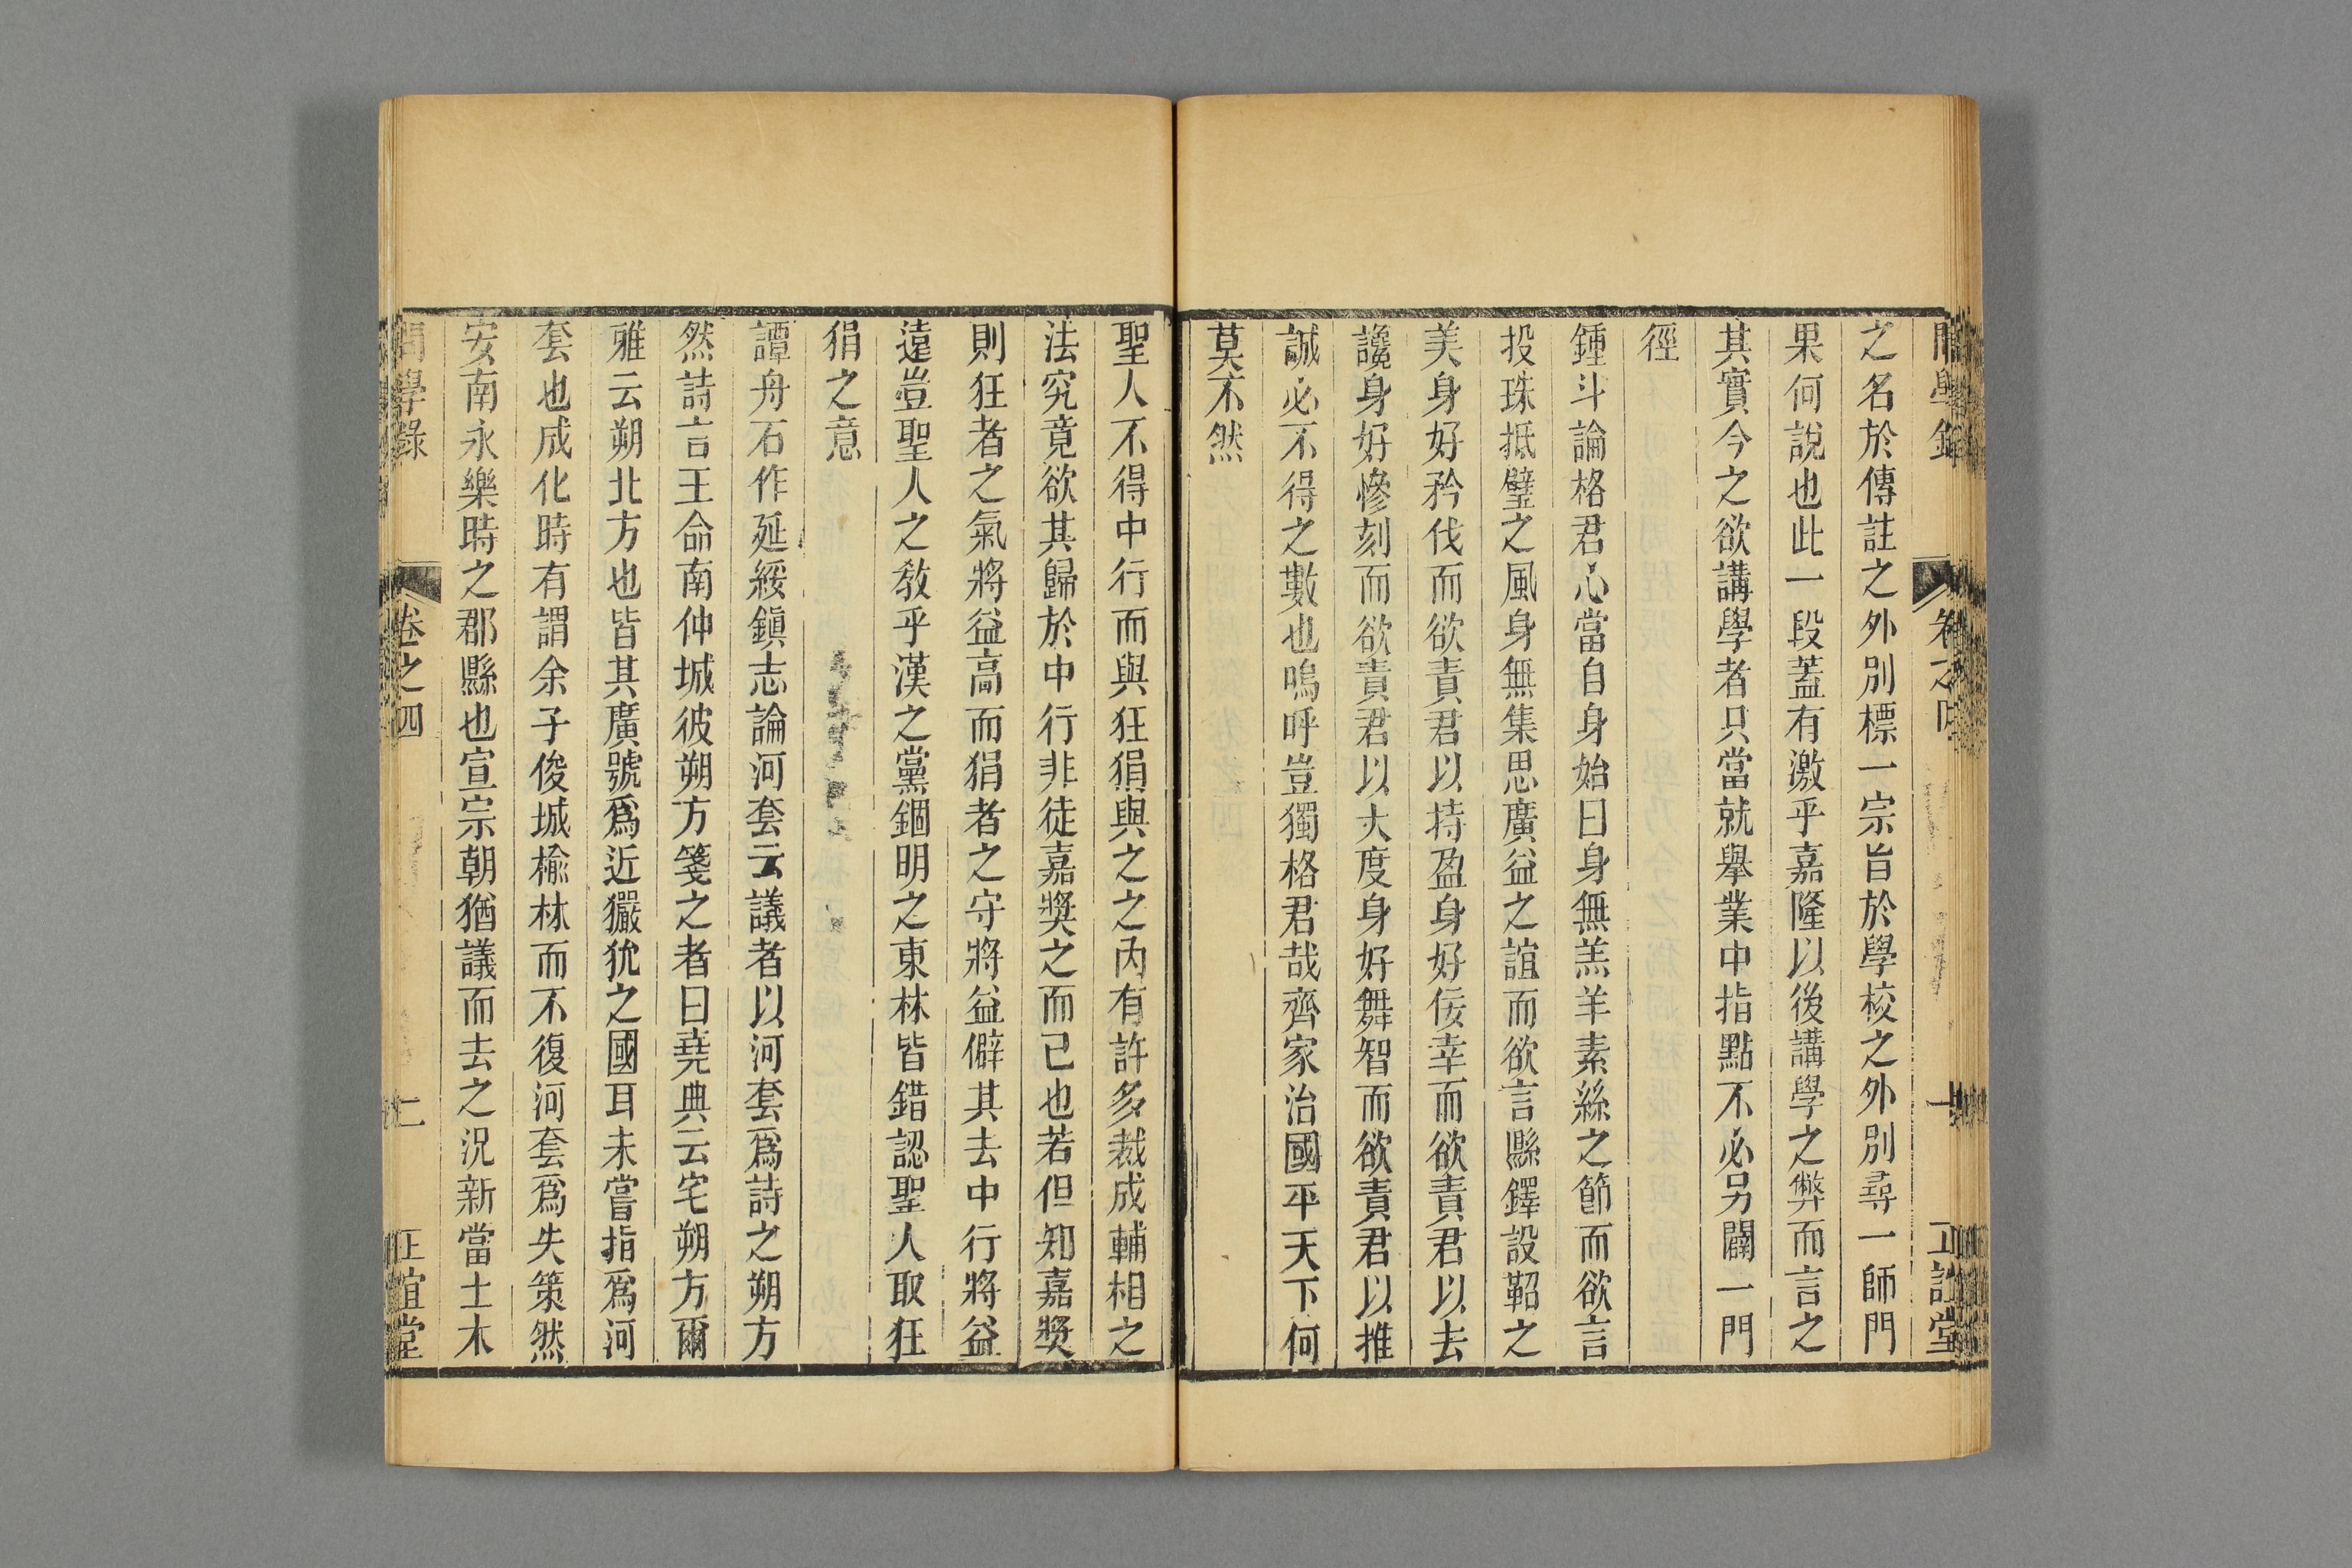 之名於傳註之外別標一宗旨於學校之外別尋一師門
果何說也此一段蓋有激乎嘉隆以後講學之弊而言之
其實今之欲講學者只當就舉業中指點不必另闢一門
徑
鍾斗論格君心當自身始曰身無羔羊素絲之節而欲言
投珠抵璧之風身無集思廣益之誼而欲言縣鐸設鞀之
美身好矜伐而欲責君以持盈身好佞幸而欲責君以去
讒身好慘刻而欲責君以大度身好舞智而欲責君以推
誠必不得之數也嗚呼豈獨格君哉齊家治國平天下何
莫不然
聖人不得中行而與狂狷與之之內有許多裁成輔相之
法究竟欲其歸於中行非徒嘉獎之而已也若但知嘉獎
則狂者之氣將益高而狷者之守將益僻其去中行將益
遠豈聖人之教乎漢之黨錮明之東林皆錯認聖人取狂
狷之意
譚舟石作延綏鎮志論河套云議者以河套爲詩之朔方
然詩言王命南仲城彼朔方箋之者曰堯典云宅朔方爾
雅云朔北方也皆其廣號爲近玁狁之國耳未嘗指爲河
套也成化時有謂余子俊城楡林而不復河套爲失策然
安南永樂時之郡縣也宣宗朝猶議而去之況新當土木
問學錄 卷之四 二 正誼堂